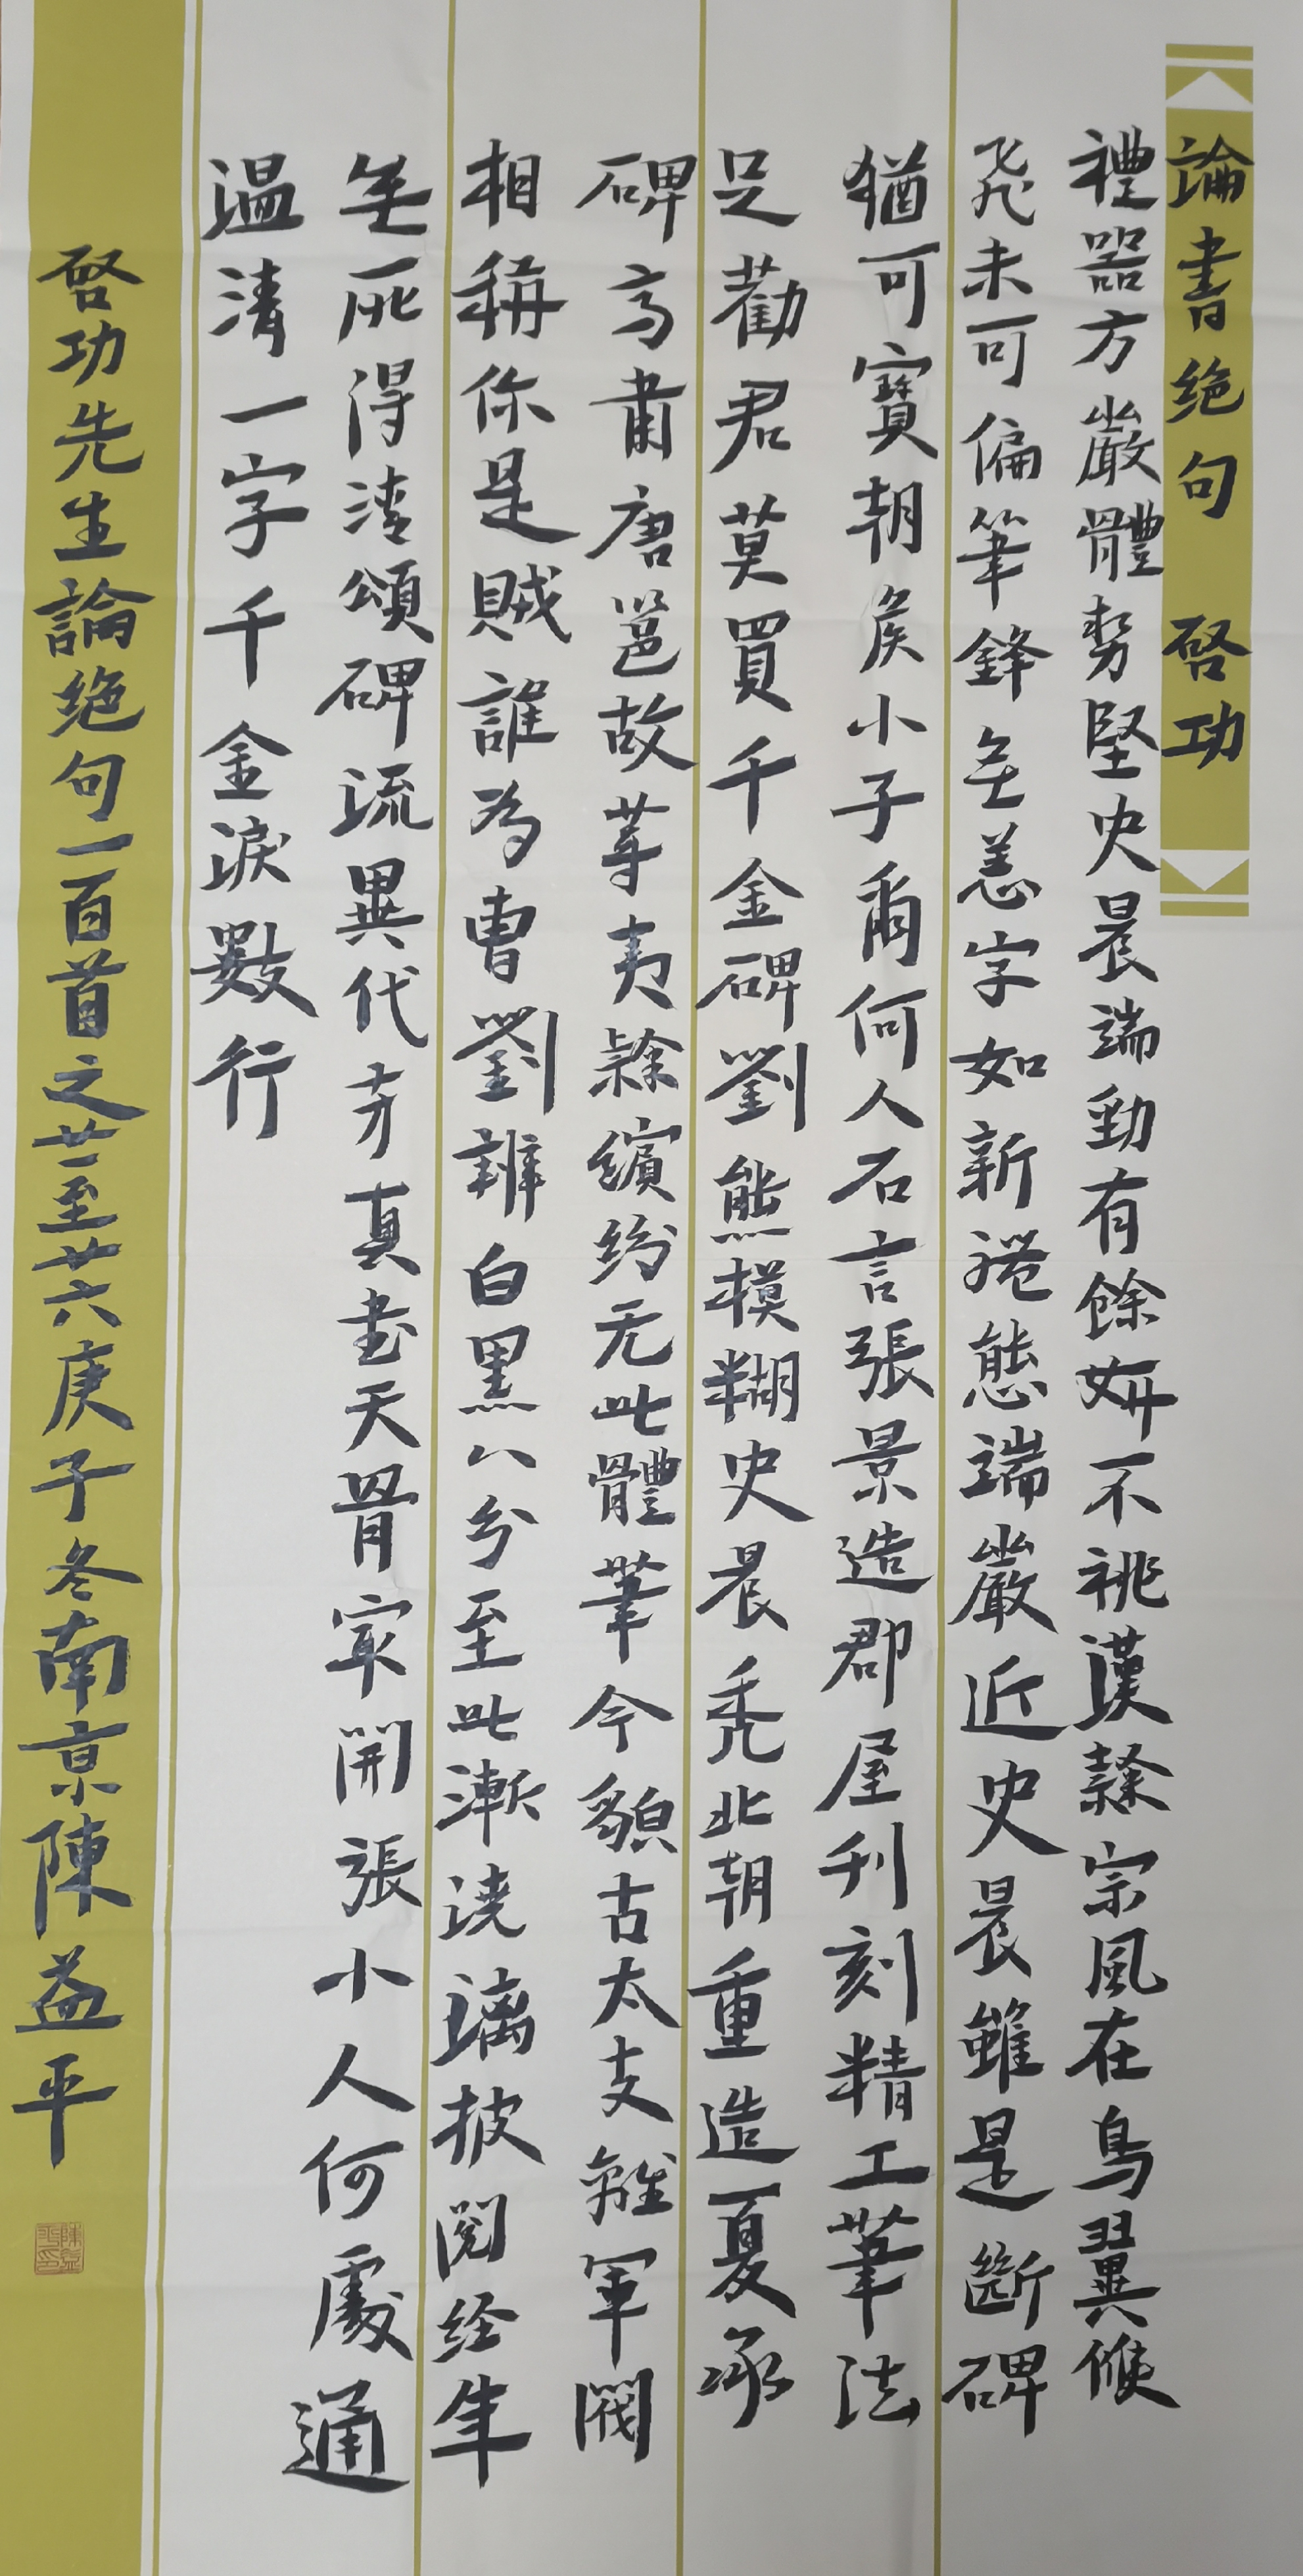 論書絶句 啓功
禮器方嚴體勢堅史晨端勁有餘妍不祧漢隸宗風在鳥翼儵
飛未可偏筆鋒無恙字如新體態端嚴近史晨雖是斷碑
猶可寶朝侯小子爾何人石言張景造郡屋刊刻精工筆法
足勸君莫買千金碑劉熊模糊史晨秃北朝重造夏承
碑高肅唐邕故等夷隸繽紛无此體筆今貌古太支離軍閥
相稱你是賊誰为曹劉辨白黑八分至此漸澆漓披閲经年
無厭得清頌碑流異代芳真书天骨㝡開張小人何處通
温清一字千金淚數行
啓功先生論絶句一百首之廿一至廿六庚子冬南京陳益平
陳益平印